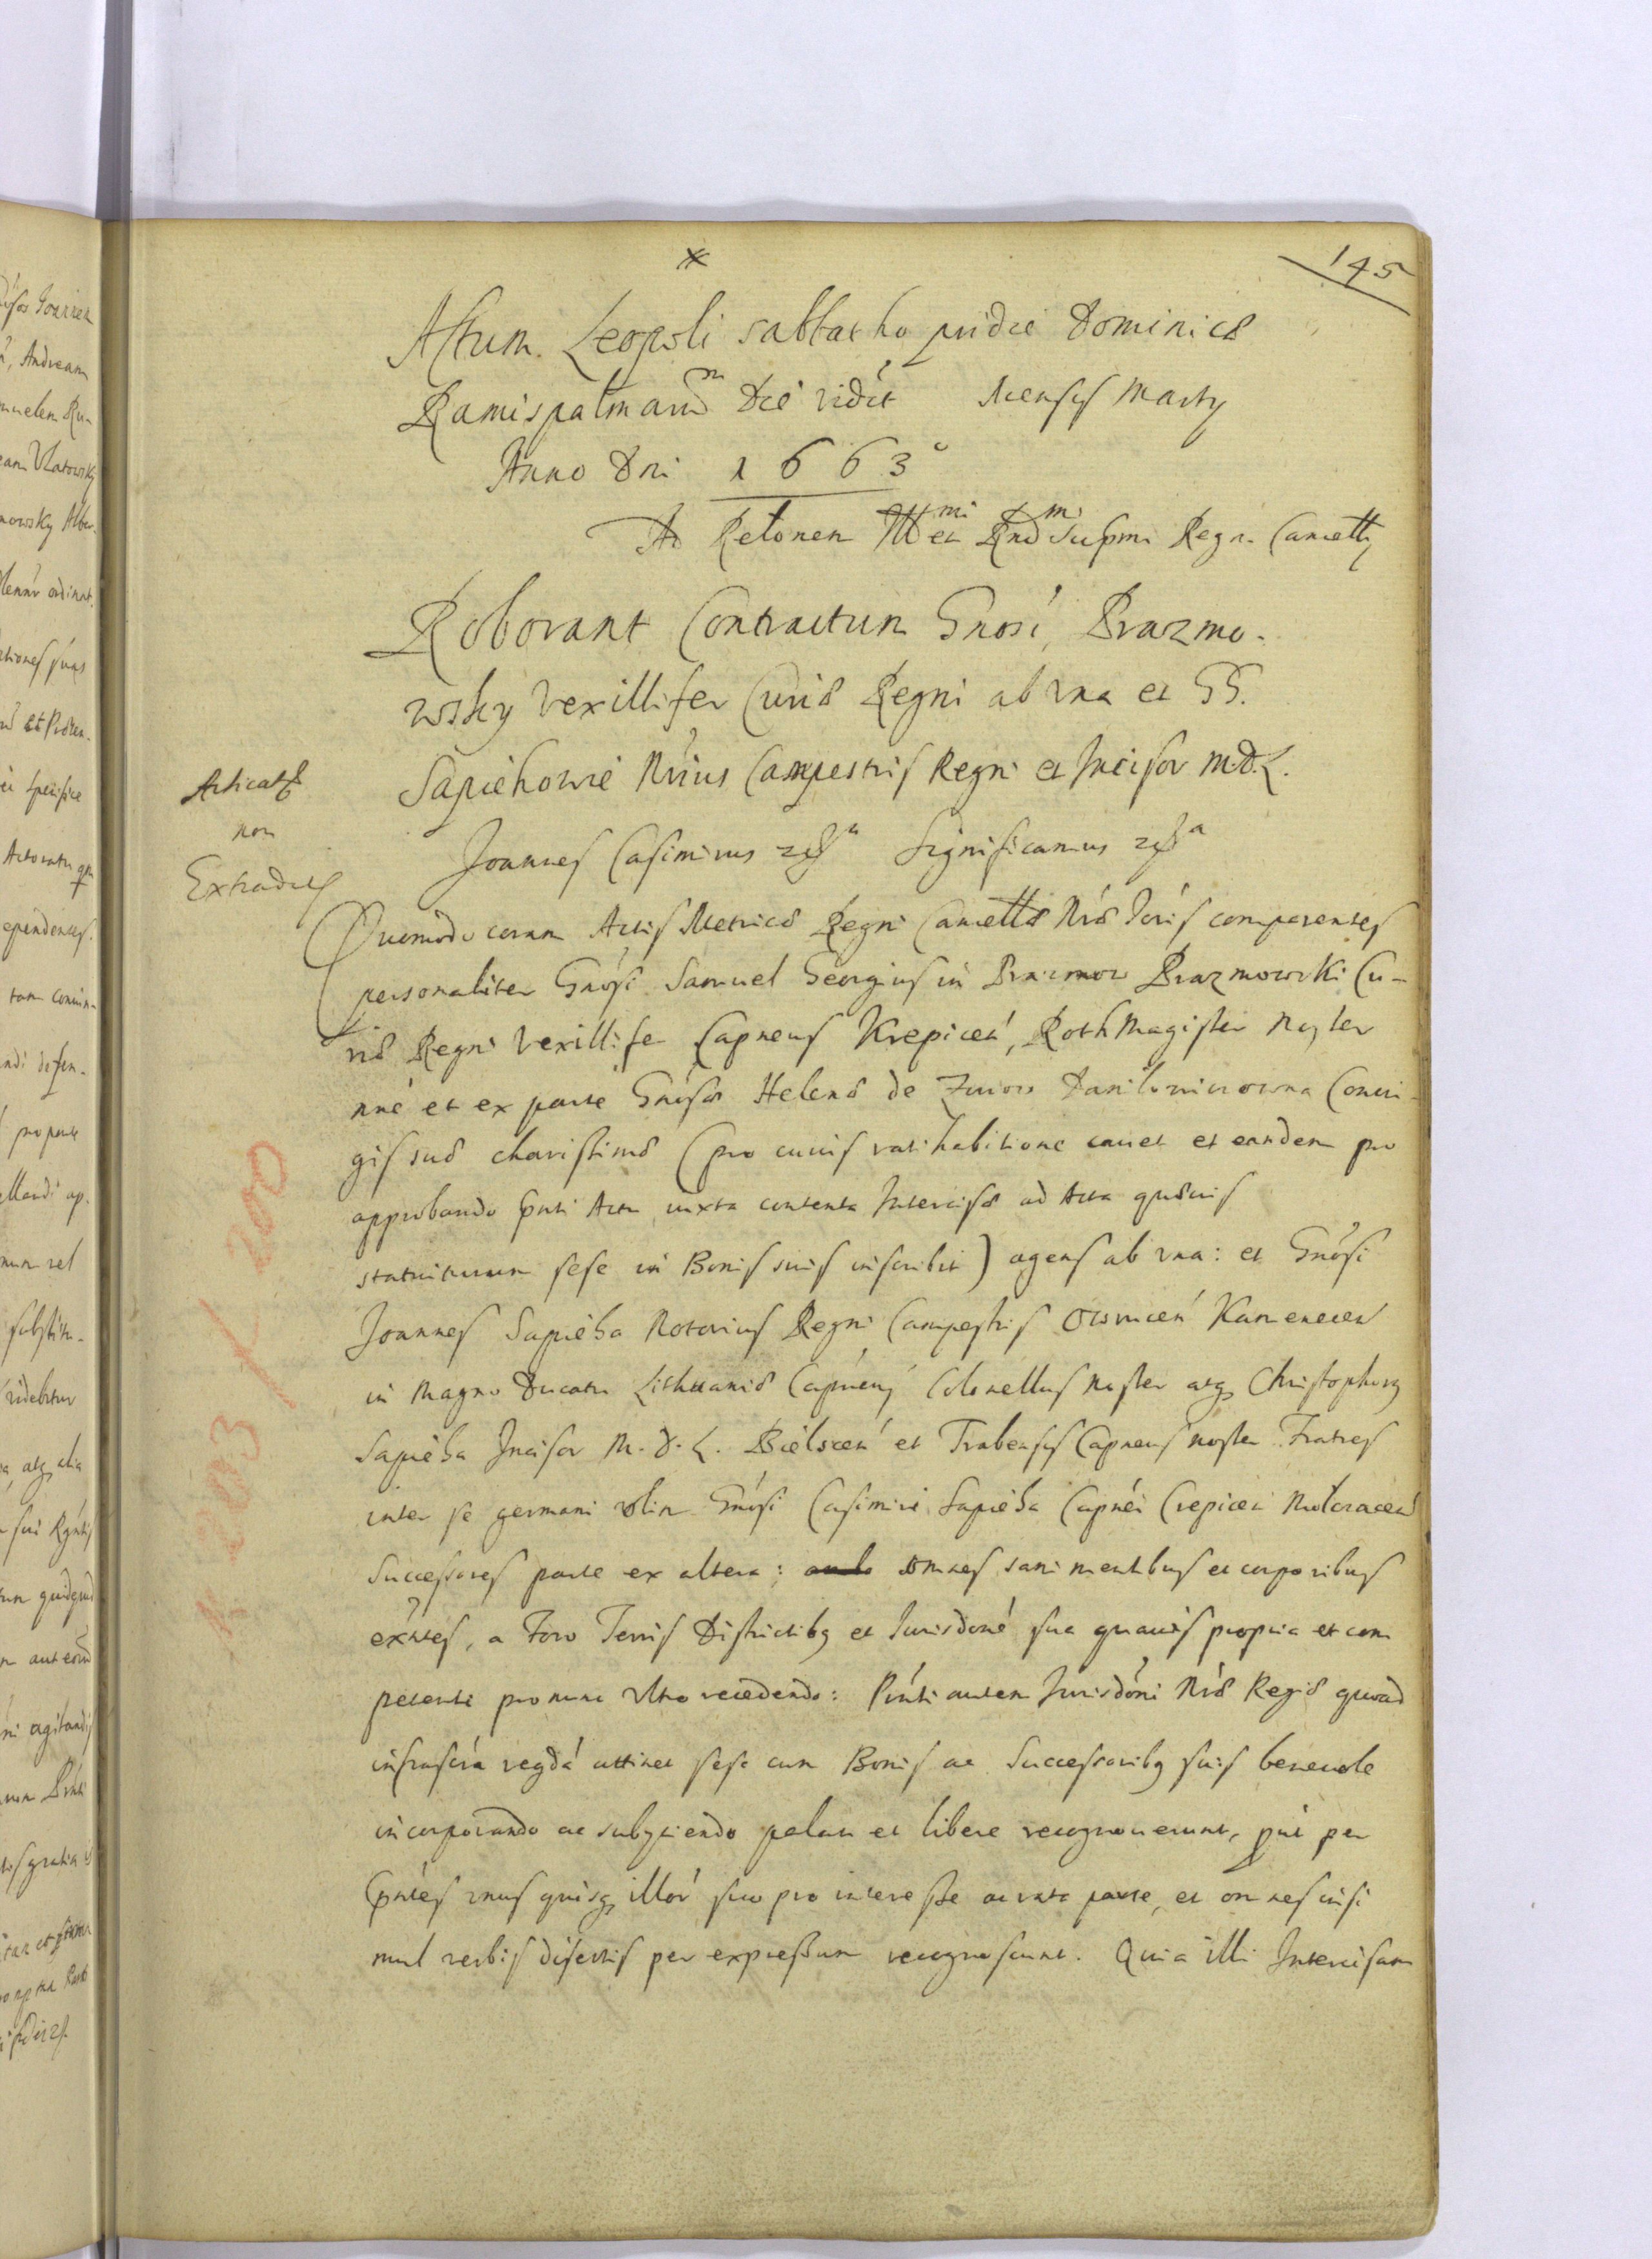 145
Actum Leopoli sabbatho pridie Dominicæ
Ramispalmarum Die videlicet Mensis Marty
Anno Dni 1663°
Ad Relonem Illmi et Rndmi Supmi Regni Cancell
Roborant Contractum Gnosi, Prazmo-
wsky Vexillifer Curiæ Regni ab vna et GG.
Sapiehowie Nrius Campestris Regni et Incisor M.D.L.
Joannes Casimirus &c Significamus &c
Quomodo coram Actis Metricæ Regni Cancellæ Nræ Ioris comparentes
personaliter Gnosi Samuel Georgius in Prazmow Prazmowski Cu-
riæ Regni Vexillifer Capneus Krepicen, RothMagister Noster
nne et ex parte Gnosæ Helenæ de Zurow Danilowiczowna Coniu-
gis suæ charissimæ (pro cuius ratihabitione cauet et eandem pro
approbando pnti Actu iuxta contenta Intercisæ ad Acta quæuis
statuiturum sese in Bonis suis inscribit) agens ab vna: et Gnosi
Joannes Sapieha Notarius Regni Campestris Owrucen Kamenecen
in Magno Ducatu Lithuaniæ Capneus Colonellus noster atq Christophorus
Sapieha Incisor M.D.L. Bielscen et Trabensis Capneus noster Fratres
inter se germani olim Gnosi Casimiri Sapieha Capnei Crepicen
Successores parte ex altera; omnes sani mentibus et corporibus
exntes, a Foro Terris Districtibq et Jurisdone sua quauis propria et com
petenti pro nunc vltro recedendo: Pnti autem Jurisdoni Nræ Regiæ quoad
infrascra regda attinet sese cum Bonis ac Successoribq suis beneuole
incorporando ac subyciendo palam et libere recognouerunt, put per
pntes vnus quisq illor suo pro interesse ac rata parte, et omnes insi
mul verbis disertis per expressum recognoscunt. Quia illi Intercisam
Articat
non
Extradit